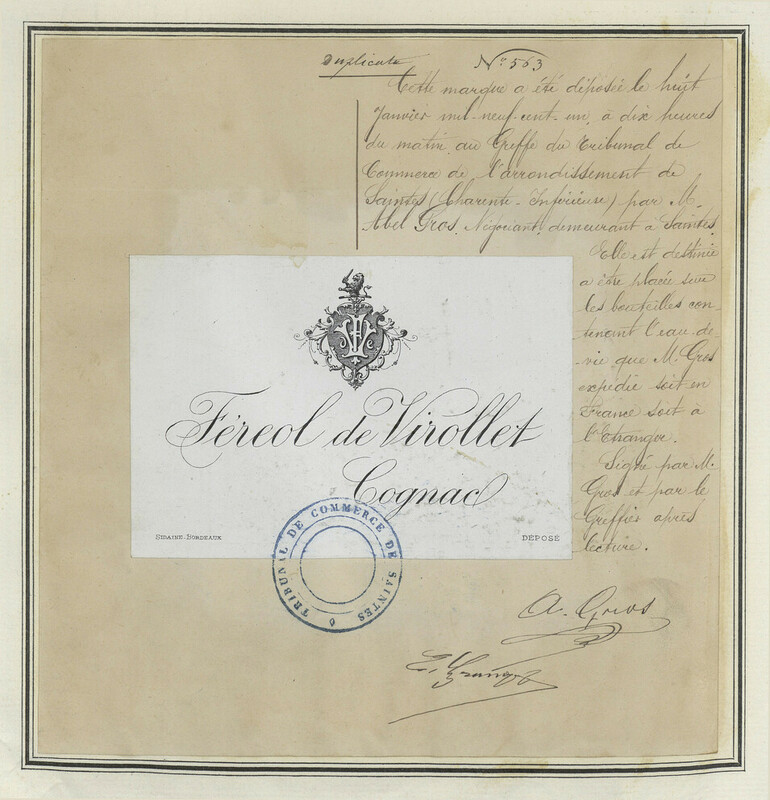 Duplicata
N° 563
Cette marque a été déposée le huit
Janvier mil-neuf-cent-un, à dix heures
du matin au Greffe du Tribunal de
Commerce de l'arrondissement de
Saintes (Charente-Inférieure) par M.
Abel Gros, Négociant, demeurant à Saintes.
Elle est destinée
a être placée sur
les bouteilles con-
tenant l'eau-de-
vie que M. Gros
expédie soit en
France soit à
l'Etranger.
Signé par M.
Gros et par le
Greffier après
lecture.
Féreol de Virollet
Cognac
SIRAINE-BORDEAUX
DÉPOSÉ
TRIBUNAL DE COMMERCE DE SAINTES
A. Gros